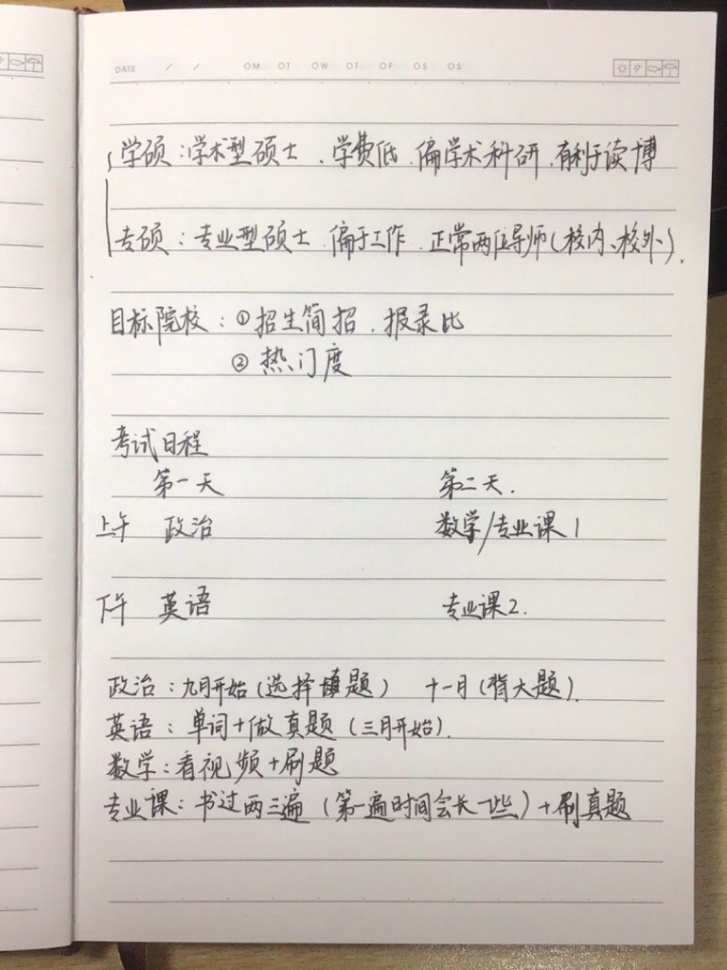 DATE / / OM OT OW OT OF OS OS
学硕：学术型硕士、学费低、偏学术科研、有利于读博
专硕：专业型硕士、偏于工作、正常两位导师（校内、校外）.
目标院校：①招生简招、报录比
②热门度
考试日程
第一天 第二天.
上午 政治 数学/专业课1
下午 英语 专业课2.
政治：九月开始（选择填题） 十一月（背大题）.
英语：单词+做真题（三月开始）.
数学：看视频+刷题
专业课：书过两三遍（第一遍时间会长一些）+刷真题